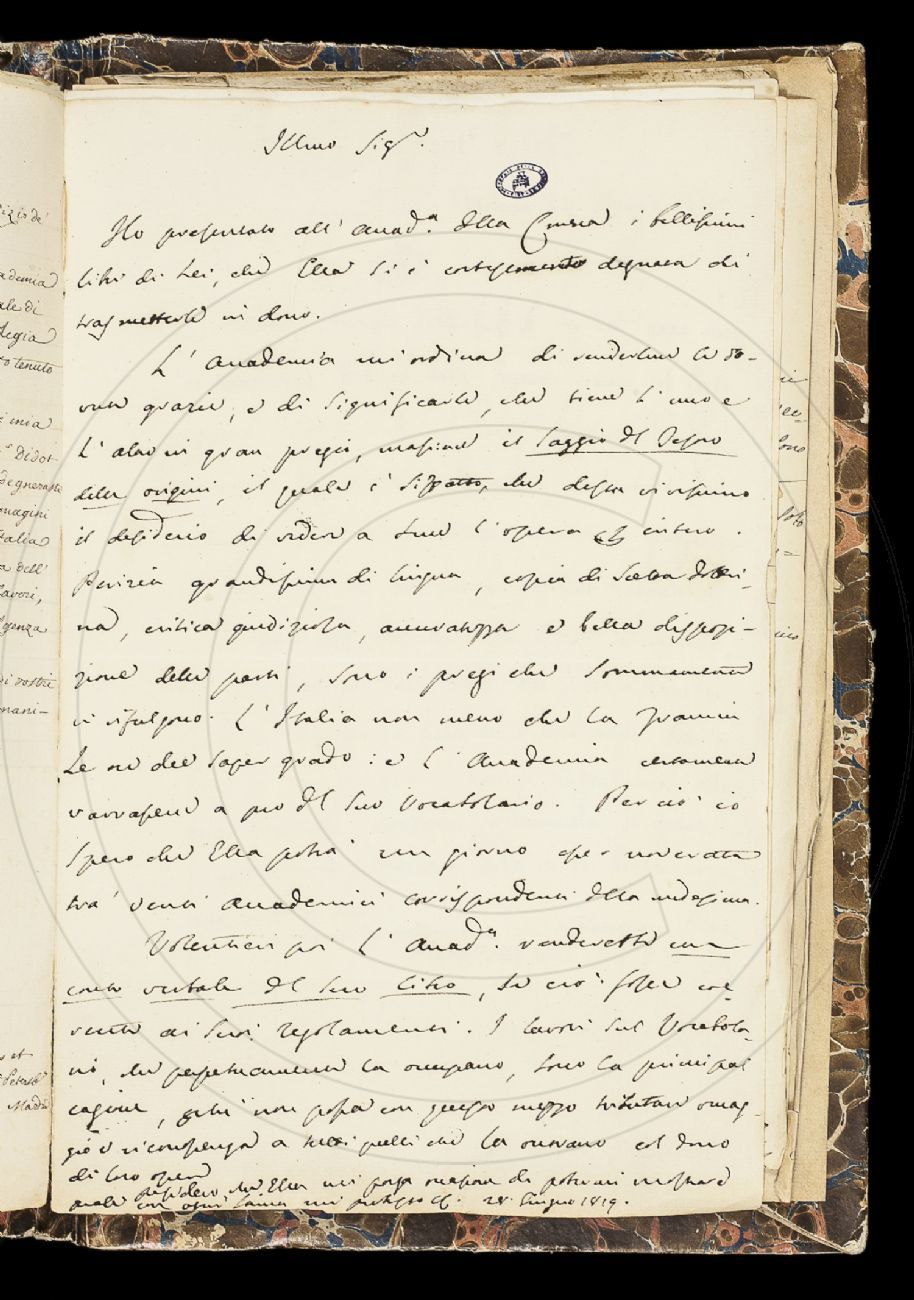 Illmo Sig.r
Ho presentato all' Accad.a della Crusca i bellissimi
libri di Lei, che Ella si è cortesemente degnata di
trasmetterle in dono.
L' Accademia mi ordina di renderlene le do-
vute grazie, e di significarle, che tiene l' uno e
l' altro in gran pregio, massime il Saggio del Tesoro
delle origini, il quale è sì fatto, che desta vivissimo
il desiderio di vedere a luce l' opera intera.
Perizia grandissima di lingua, copia di scelta dottri-
na, critica giudiziosa, accuratezza e bella disposi-
zione delle parti, sono i pregi che sommamente
vi rifulgono. L' Italia non meno che la Francia
Le ne dee saper grado: e l' Accademia certamente
varrassene a pro del suo Vocabolario. Perciò io
spero che Ella potrà un giorno esser noverata
tra' venti Accademici corrispondenti della medesima.
Volentieri poi l' Accad.a renderebbe un
conto verbale del suo Libro, se ciò fosse con
veniente ai suoi regolamenti. I lavori sul Vocabola
rio, che perpetuamente la occupano, sono la principal
cagione, perchè non possa con questo mezzo tributare omag-
gio e riconpenza a tutti quelli che la onorano col dono
di loro opere
Desidero che Ella mi porga occasione di potermi mostrare
quale con ogni stima mi protesto 28 Giugno 1819.
izio de'
ademia
ale di
Regia
to tenuto
mia
Didot
Degnerassi
magini
talia
a dell'
lavori,
genza
i vostri
nani-
et
Madri